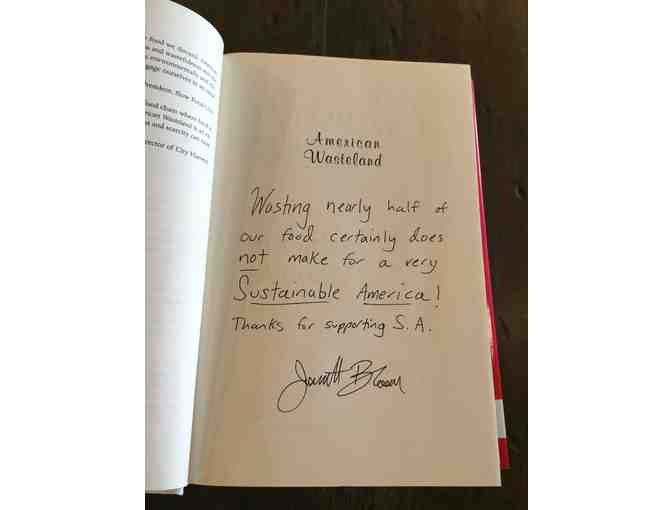 food we discard. American
and wastefulness
environmentally and
gage ourselves in
President, Slow Food USA
food chain where food is
rican Wasteland is an
and scarcity can
rector of City Harvest
American
Wasteland
Wasting nearly half of
our food certainly does
not make for a very
Sustainable America!
Thanks for supporting S.A.
Jonath Bloom